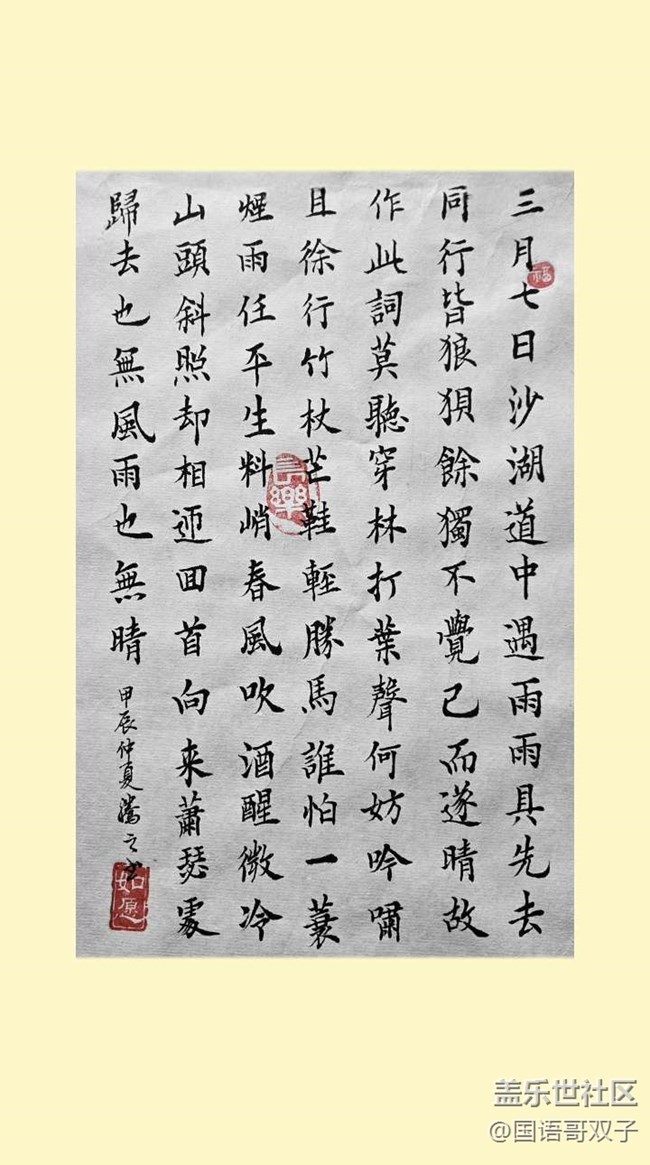 三月七日沙湖道中遇雨雨具先去
同行皆狼狽餘獨不覺已而遂晴故
作此詞莫聽穿林打葉聲何妨吟嘯
且徐行竹杖芒鞋輕勝馬誰怕一蓑
煙雨任平生料峭春風吹酒醒微冷
山頭斜照却相迎回首向来蕭瑟處
歸去也無風雨也無晴
甲辰仲夏騰之書
福
樂
如愿
盖乐世社区
@国语哥双子